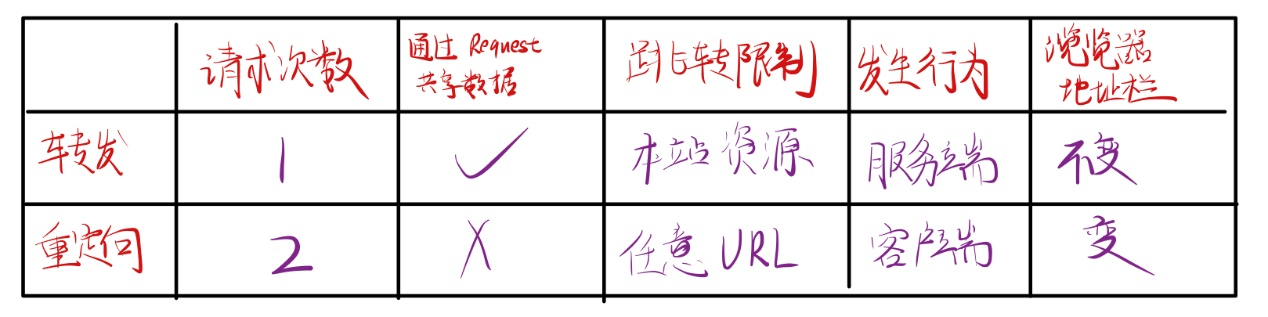 请求次数 通过 Request 共享数据 跳转限制 发生行为 浏览器地址栏
转发 1 ✓ 本站资源 服务端 不变
重定向 2 X 任意 URL 客户端 变